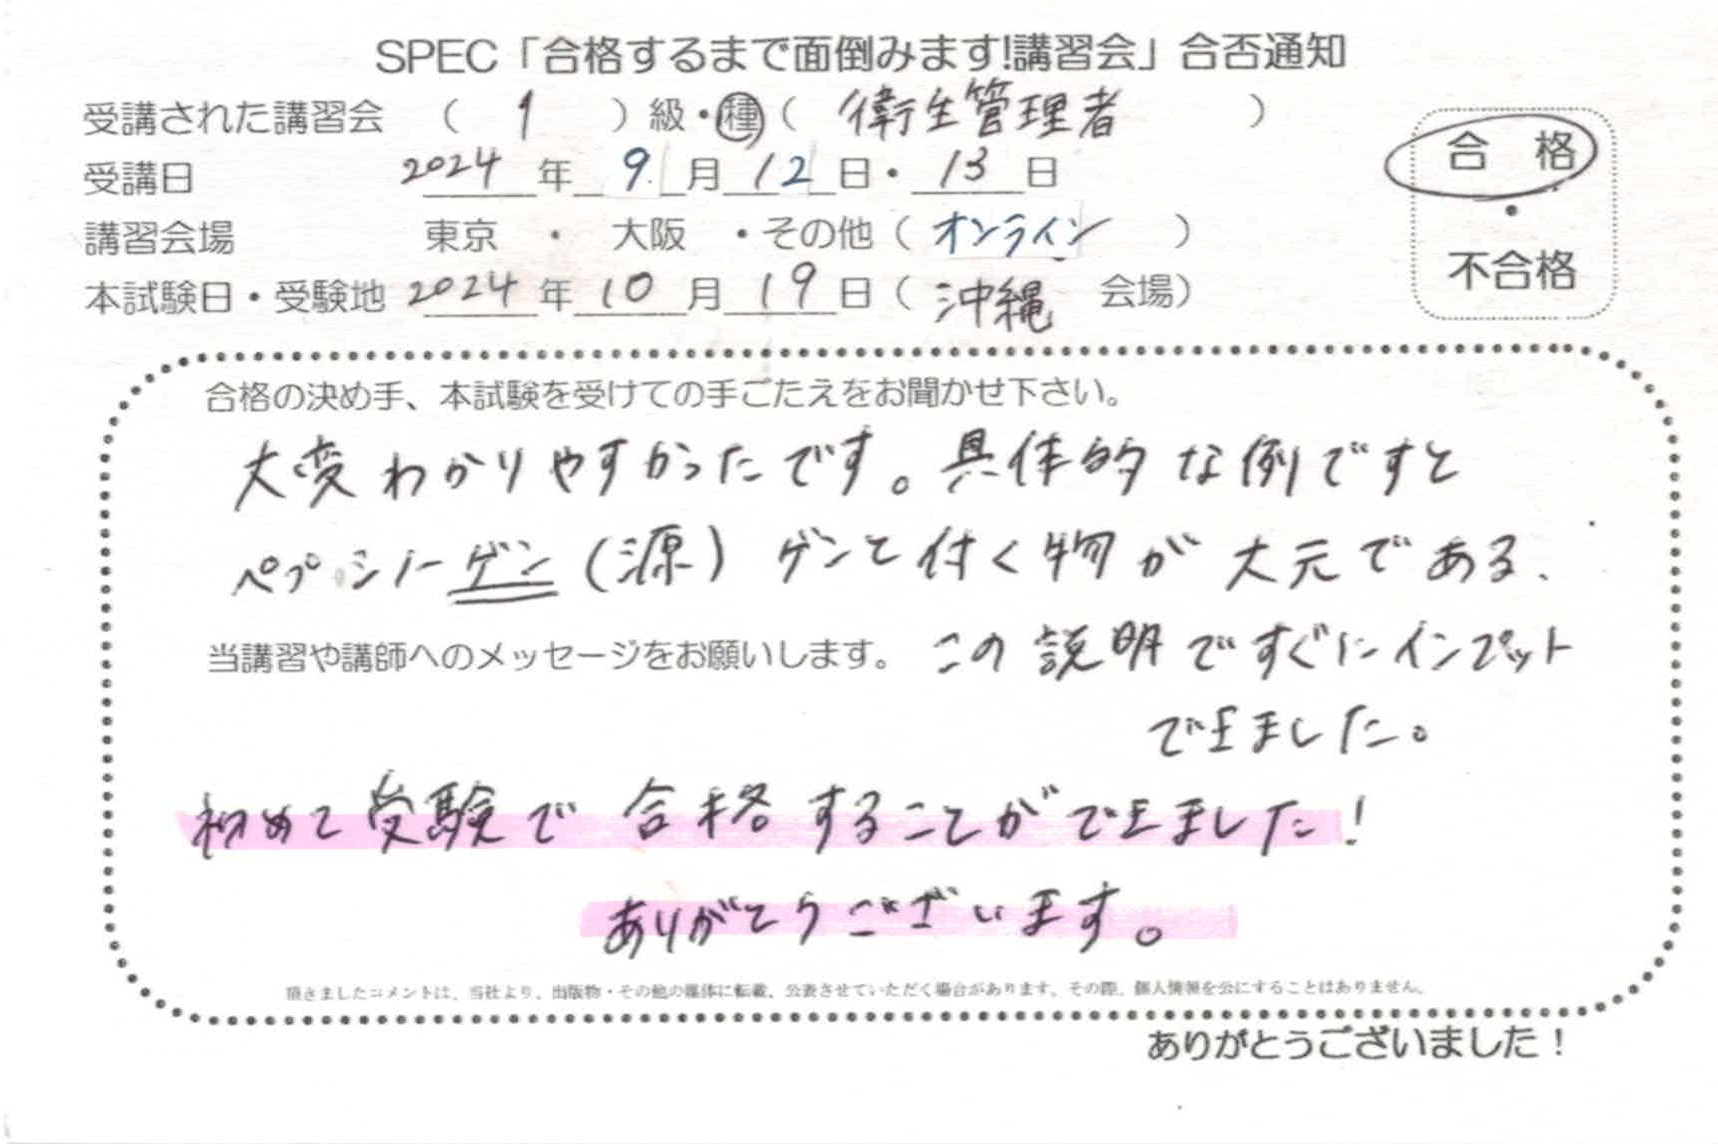 SPEC「合格するまで面倒みます!講習会」合否通知
受講された講習会 （ 1 ）級・種（ 衛生管理者 ）
受講日 2024 年 9 月 12 日・ 13 日
講習会場 東京 ・ 大阪 ・その他（ オンライン ）
本試験日・受験地 2024 年 10 月 19 日（ 沖縄 会場）
合 格
・
不合格
合格の決め手、本試験を受けての手ごたえをお聞かせ下さい。
大変わかりやすかったです。具体的な例ですと
ペプシノーゲン（源）ゲンと付く物が大元である、
当講習や講師へのメッセージをお願いします。 この説明ですぐにインプット
できました。
初めて受験で合格することができました！
ありがとうございます。
頂きましたコメントは、当社より、出版物・その他の媒体に転載、公表させていただく場合があります。その際、個人情報を公にすることはありません。
ありがとうございました！